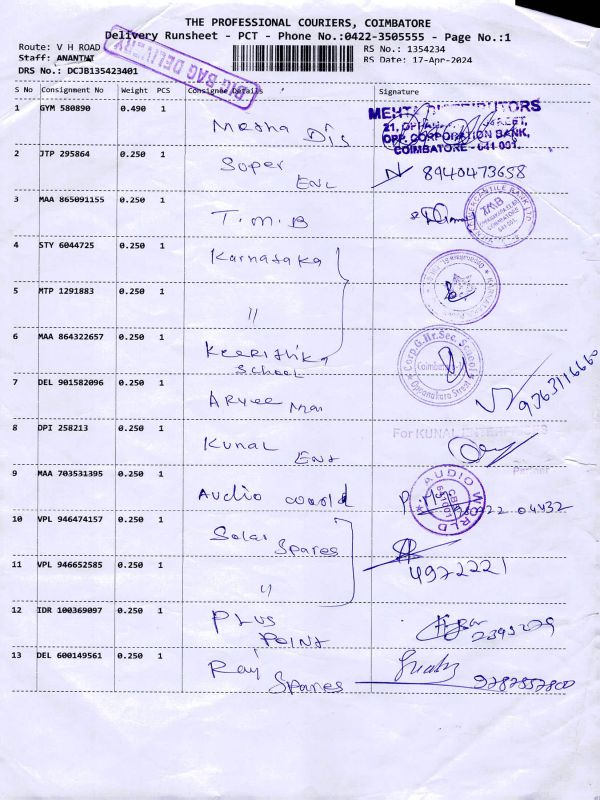 THE PROFESSIONAL COURIERS, COIMBATORE
Delivery Runsheet - PCT - Phone No.:0422-3505555 - Page No.:1
Route: V H ROAD
RS No.: 1354234
Staff: ANANTHI
RS Date: 17-Apr-2024
DRS No.: DCJB135423401
BIG BAG DELIVERY
S No Consignment No Weight PCS Consignee Details Signature
1 GYM 580890 0.490 1 Megha Dis
MEHTA DISTRIBUTORS
21, OPPANAKARA STREET,
OPP. CORPORATION BANK,
COIMBATORE - 641 001.
2 JTP 295864 0.250 1 Super Ent 8940473658
3 MAA 865091155 0.250 1 T.M.B
TMB
4 STY 6044725 0.250 1 Karnataka
5 MTP 1291883 0.250 1 "
6 MAA 864322657 0.250 1 Keerthika School
Corp.G.Hr.Sec.School
Coimbatore-1
Oppanakara Street
7 DEL 901582096 0.250 1 Aryee Mar
8 DPI 258213 0.250 1 Kunal Ent
For KUNAL ENTERPRISES
Partner
9 MAA 703531395 0.250 1 Audio world
AUDIO WORLD
CBE
641001
10 VPL 946474157 0.250 1 Solar Spares
11 VPL 946652585 0.250 1 "
4972221
12 IDR 100369097 0.250 1 Plus Point
13 DEL 600149561 0.250 1 Ray Spares 9787557800